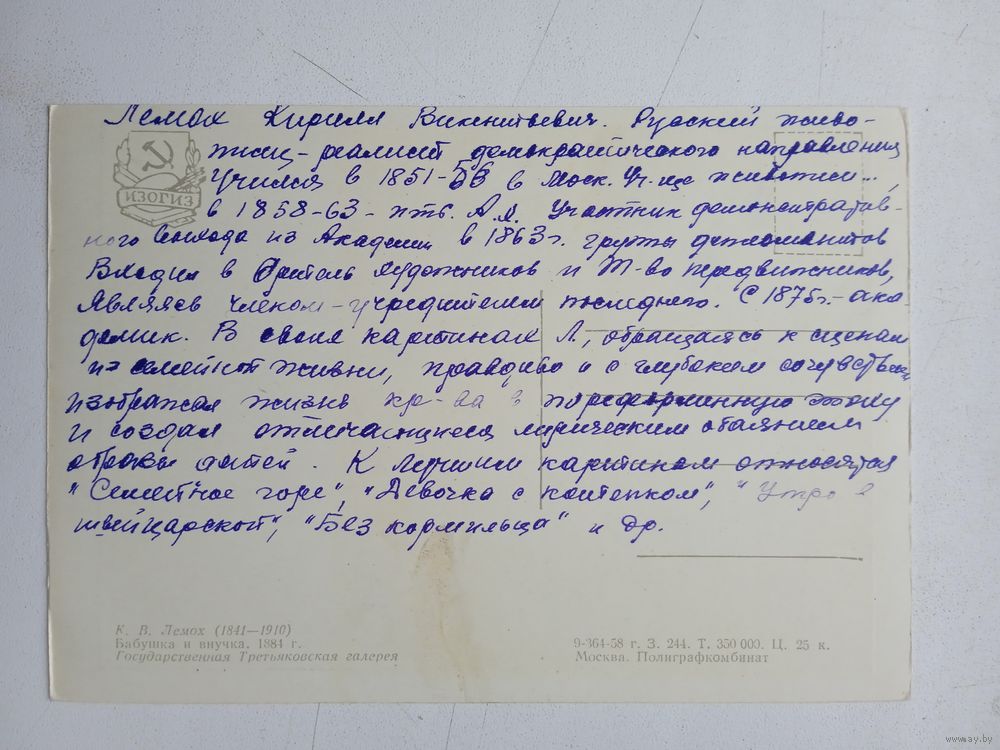 Лемох Кирилл Викентьевич. Русский живо-
писец-реалист демократического направления
Учился в 1851-58 в Моск. Уч-ще живописи..,
в 1858-63 - птб. А.Х. Участник демонстратив-
ного выхода из Академии в 1863 г. группы дипломантов
Входил в Артель художников и Т-во передвижников,
являясь членом-учредителем последнего. С 1875 г. - ака
демик. В своих картинах Л., обращаясь к сценам
из семейной жизни, правдиво и с глубоким сочувствием
изображая жизнь кр-ва в пореформенную эпоху
и создал отличающиеся лирическим обаянием
образы детей. К лучшим картинам относятся
"Семейное горе", "Девочка с котенком", "Утро в
швейцарской", "Без кормильца" и др.
ИЗОГИЗ
К. В. Лемох (1841—1910)
Бабушка и внучка. 1884 г.
Государственная Третьяковская галерея
9-364-58 г. З. 244. Т. 350 000. Ц. 25 к.
Москва. Полиграфкомбинат
www.ay.by